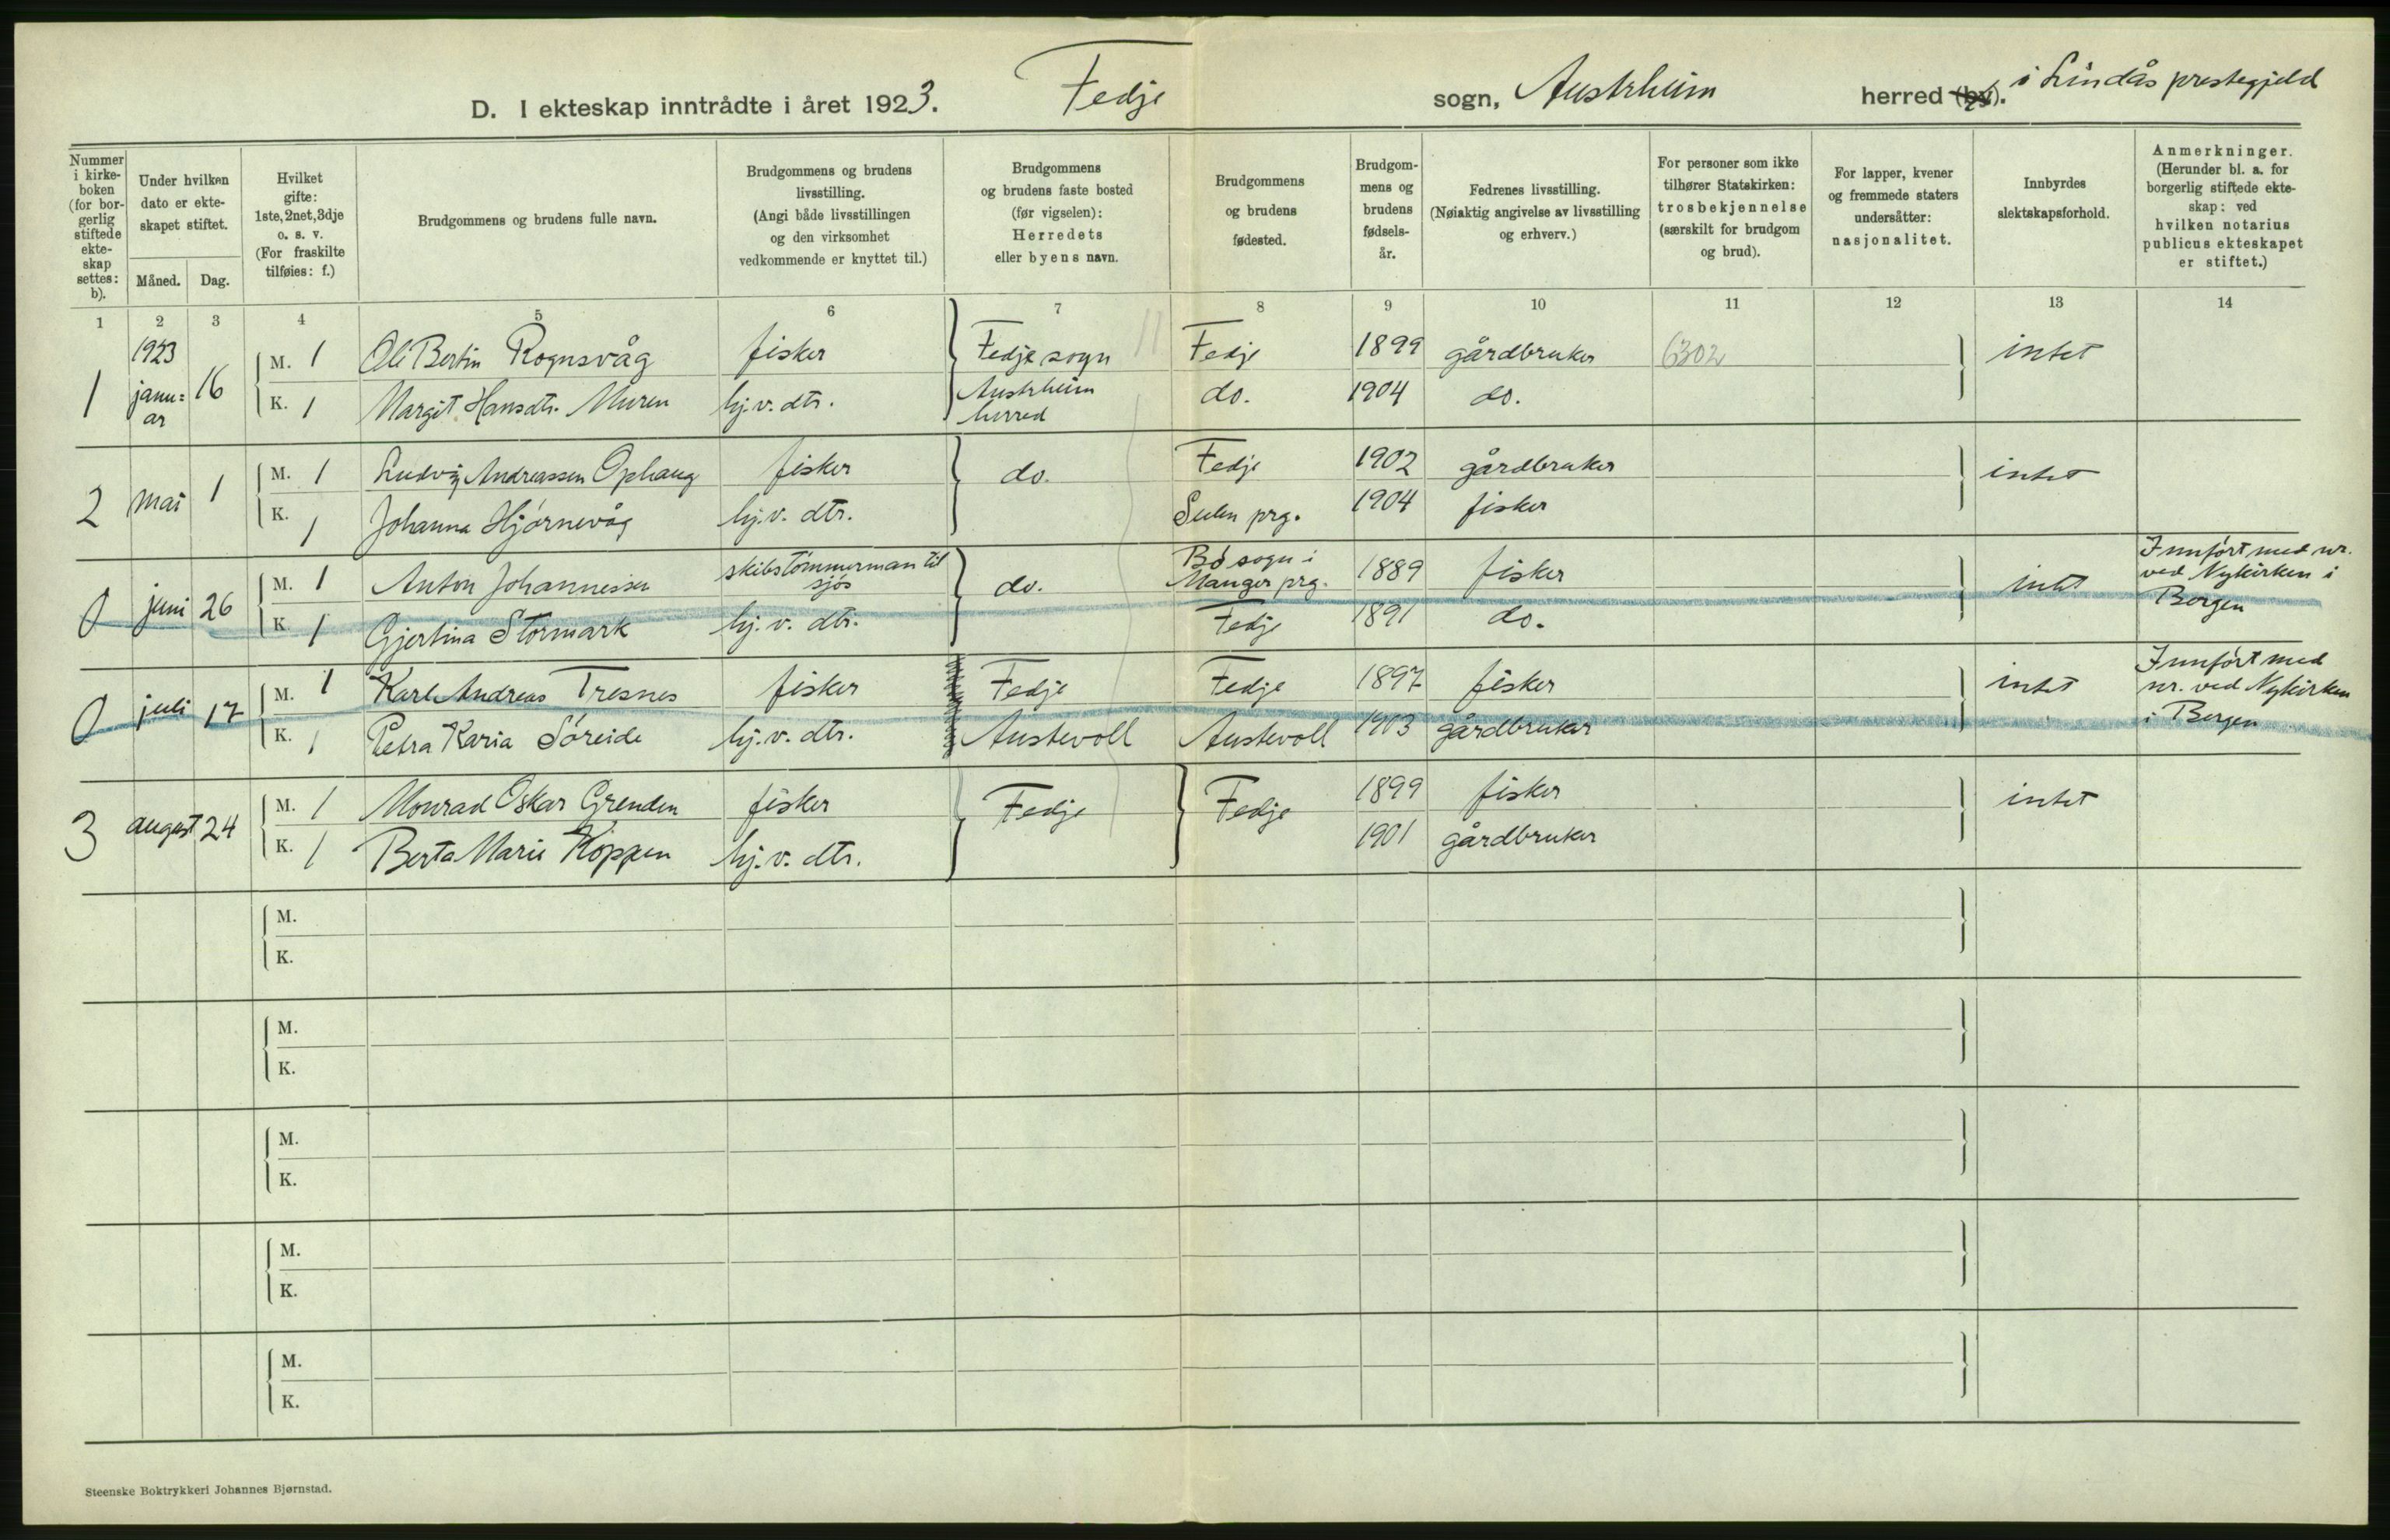 D. I ekteskap inntrådte i året 1923. Fedje sogn, Austrheim herred (by). i Lindås prestegjeld
Nummer i kirke-boken (for bor-gerlig stiftede ekte-skap settes: b).
Under hvilken dato er ekte-skapet stiftet.
Måned. Dag.
Hvilket gifte: 1ste, 2net, 3dje o. s. v. (For fraskilte tilføies: f.)
Brudgommens og brudens fulle navn.
Brudgommens og brudens livsstilling. (Angi både livsstillingen og den virksomhet vedkommende er knyttet til.)
Brudgommens og brudens faste bosted (før vigselen): Herredets eller byens navn.
Brudgommens og brudens fødested.
Brudgom-mens og brudens fødsels-år.
Fedrenes livsstilling. (Nøiaktig angivelse av livsstilling og erhverv.)
For personer som ikke tilhører Statskirken: trosbekjennelse (særskilt for brudgom og brud).
For lapper, kvener og fremmede staters undersåtter: nasjonalitet.
Innbyrdes slektskapsforhold.
Anmerkninger. (Herunder bl. a. for borgerlig stiftede ekte-skap: ved hvilken notarius publicus ekteskapet er stiftet.)
1 2 3 4 5 6 7 8 9 10 11 12 13 14
1 1923 janu=ar 16 M. 1 Ole Bertin Rognsvåg fisker Fedje sogn Fedje 1899 gårdbruker 6302 intet
K. 1 Margit Hansdtr. Muren hj.v. dtr. Austrheim herred do. 1904 do.
2 mai 1 M. 1 Ludvig Andreassen Ophaug fisker do. Fedje 1902 gårdbruker intet
K. 1 Johanna Hjørnevåg hj.v. dtr. Sulen prg. 1904 fisker
0 juni 26 M. 1 Anton Johannessen skibstömmerman til sjös do. Bö sogn i Manger prg. 1889 fisker intet Innført med nr. ved Nykirken i Bergen
K. 1 Gjertina Stormark hj.v. dtr. Fedje 1891 do.
0 juli 17 M. 1 Karl Andreas Tresnes fisker Fedje Fedje 1897 fisker intet Innført med nr. ved Nykirken i Bergen
K. 1 Petra Karia Söreide hj.v. dtr. Austevoll Austevoll 1903 gårdbruker
3 august 24 M. 1 Monrad Oskar Grenden fisker Fedje Fedje 1899 fisker intet
K. 1 Berta Marie Koppen hj.v. dtr. 1901 gårdbruker
M.
K.
M.
K.
M.
K.
M.
K.
M.
K.
Steenske Boktrykkeri Johannes Bjørnstad.